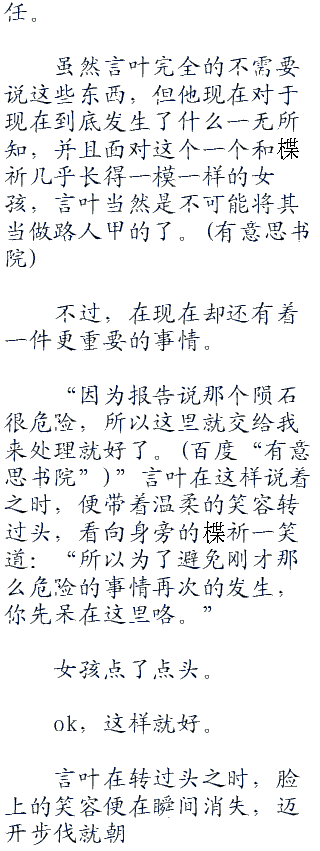 任。
虽然言叶完全的不需要
说这些东西，但他现在对于
现在到底发生了什么一无所
知，并且面对这个一个和楪
祈几乎长得一模一样的女
孩，言叶当然是不可能将其
当做路人甲的了。(有意思书
院)
不过，在现在却还有着
一件更重要的事情。
“因为报告说那个陨石
很危险，所以这里就交给我
来处理就好了。(百度“有意
思书院”)”言叶在这样说着
之时，便带着温柔的笑容转
过头，看向身旁的楪祈一笑
道：“所以为了避免刚才那
么危险的事情再次的发生，
你先呆在这里咯。”
女孩点了点头。
ok，这样就好。
言叶在转过头之时，脸
上的笑容便在瞬间消失，迈
开步伐就朝